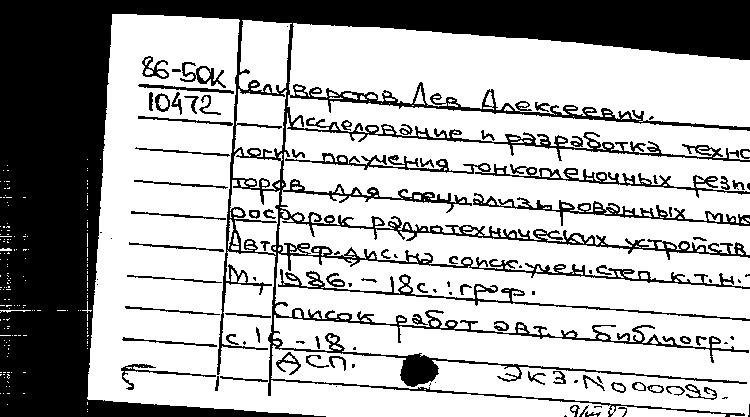 86-50К Селиверстов, Лев Алексеевич.
10472 Исследование и разработка техно
логии получения тонкопленочных резис
торов для специализированных мик
росборок радиотехнических устройств.
Автореф. дис. на соиск. учен. степ. к.т.н.-
М., 1986. - 18с. : граф.
Список работ авт. и библиогр.:
с. 16-18.
ДСП.
Экз. № 000099.
5